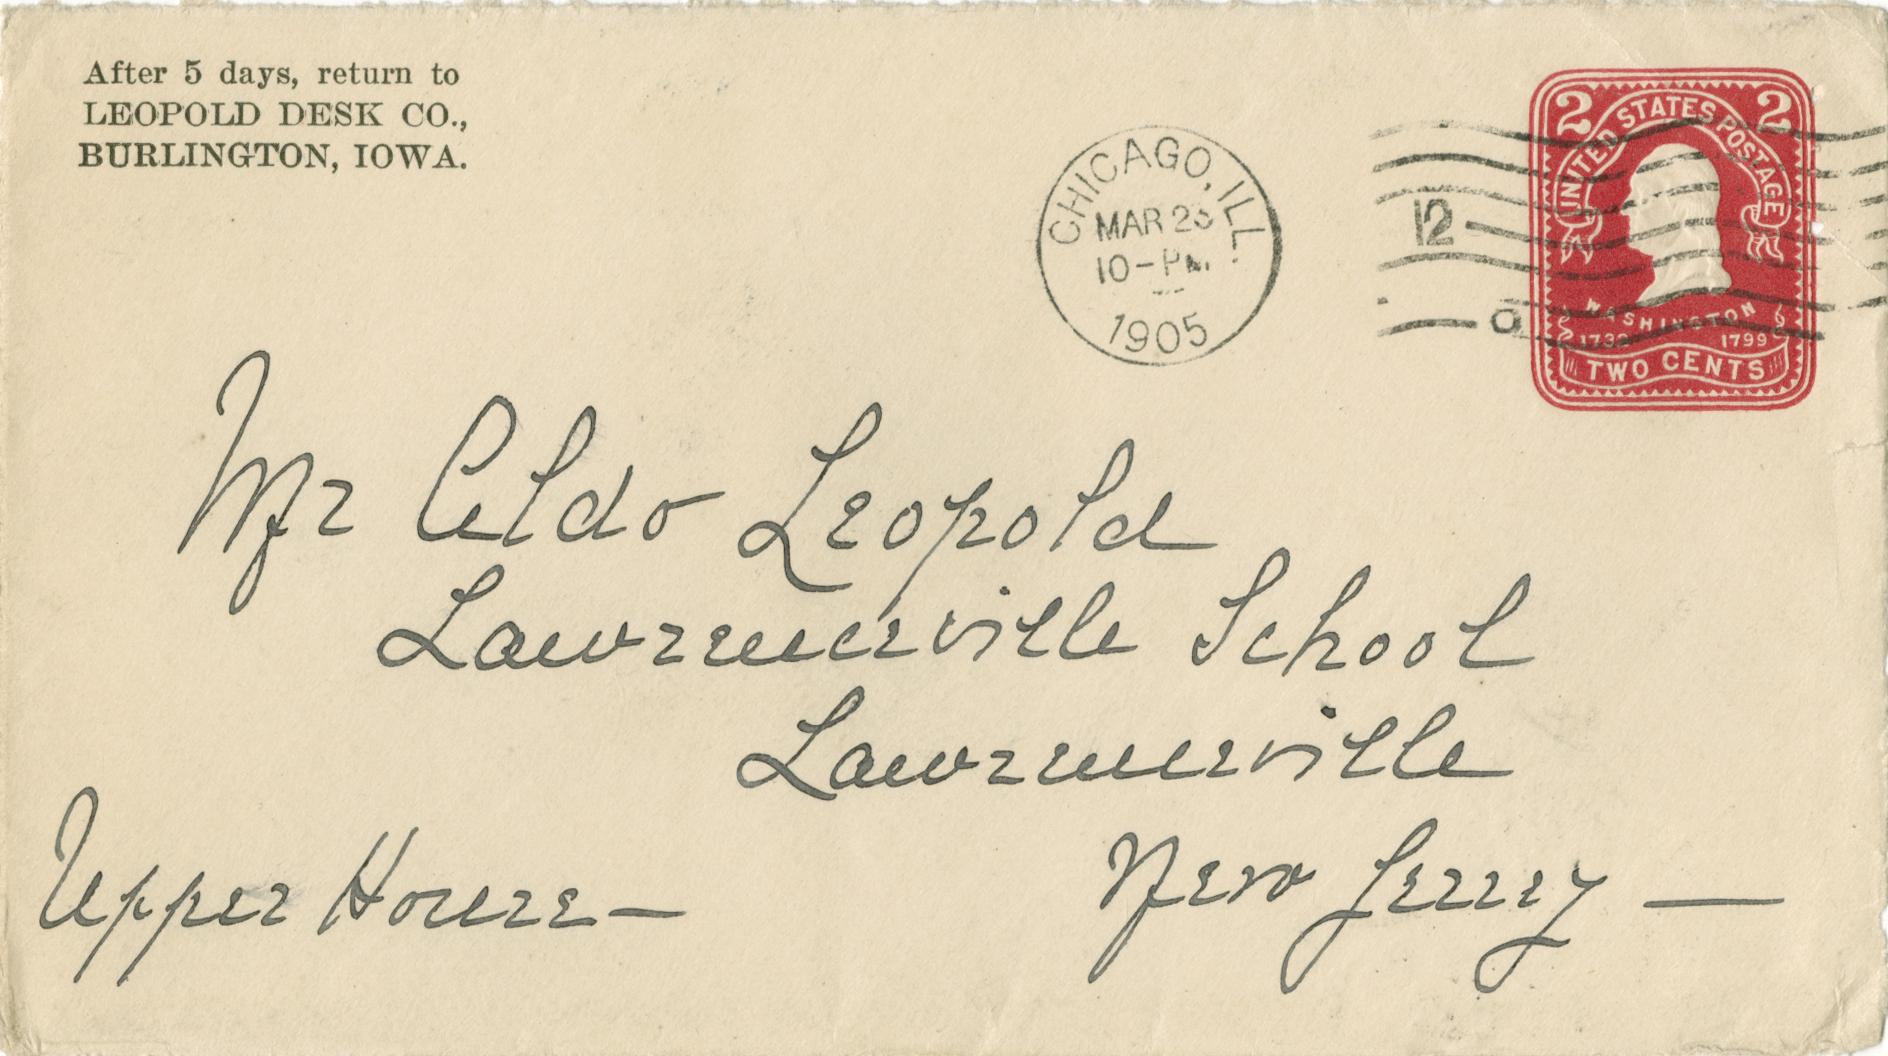 After 5 days, return to
LEOPOLD DESK CO.,
BURLINGTON, IOWA.
CHICAGO, ILL.
MAR 23
10-PM
1905
12
2 UNITED STATES POSTAGE 2
WASHINGTON
1732 1799
TWO CENTS
Mr Aldo Leopold
Lawrenceville School
Lawrenceville
New Jersey —
Upper House —